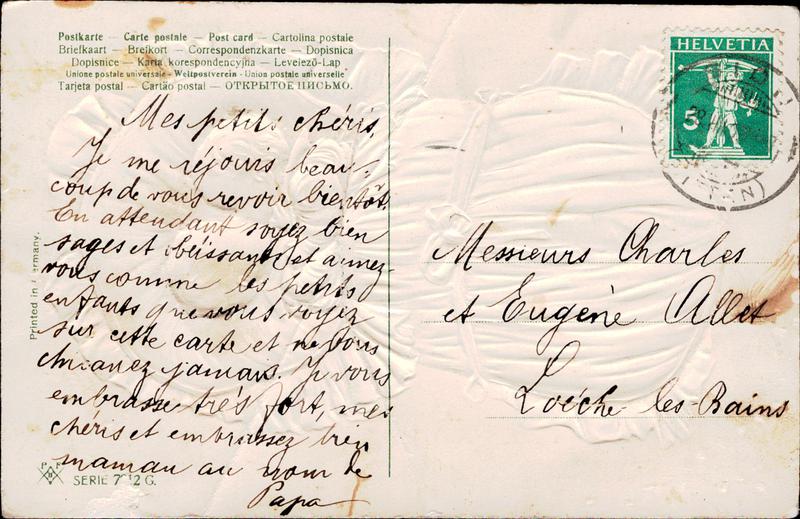 Postkarte — Carte postale — Post card — Cartolina postale
Briefkaart — Brefkort — Correspondenzkarte — Dopisnica
Dopisnice — Karta korespondencyjna — Levelezö-Lap
Unione postale universale - Weltpostverein - Union postale universelle
Tarjeta postal — Cartão postal — ОТКРЫТОЕ ПИСЬМО.
Mes petits chéris,
Je me réjouis beau-
coup de vous revoir bientôt.
En attendant soyez bien
sages et obéissants et aimez-
vous comme les petits
enfants que vous voyez
sur cette carte et ne vous
chicanez jamais. Je vous
embrasse très fort, mes
chéris et embrassez bien
maman au nom de
Papa
Printed in Germany.
SERIE G.
HELVETIA
5
Messieurs Charles
et Eugène Allet
Loèche-les-Bains